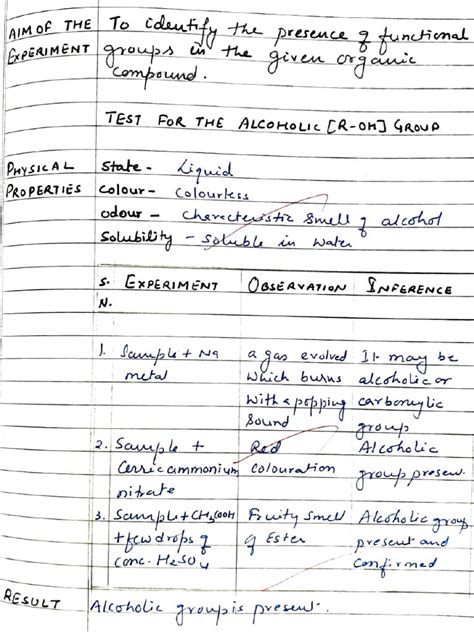 AIM OF THE To identify the presence of functional
EXPERIMENT groups in the given organic
compound.
TEST FOR THE ALCOHOLIC [R-OH] GROUP
PHYSICAL State - Liquid
PROPERTIES Colour - Colourless
odour - Characteristic smell of alcohol
Solubility - Soluble in water
S. EXPERIMENT OBSERVATION INFERENCE
N.
1. Sample + Na a gas evolved It may be
metal which burns alcoholic or
with a popping carbonylic
Sound group
2. Sample + Red Alcoholic
Cerric ammonium colouration group present.
nitrate
3. Sample + CH3COOH Fruity Smell Alcoholic group
+ few drops of of Ester present and
conc. H2SO4 confirmed
RESULT Alcoholic group is present.